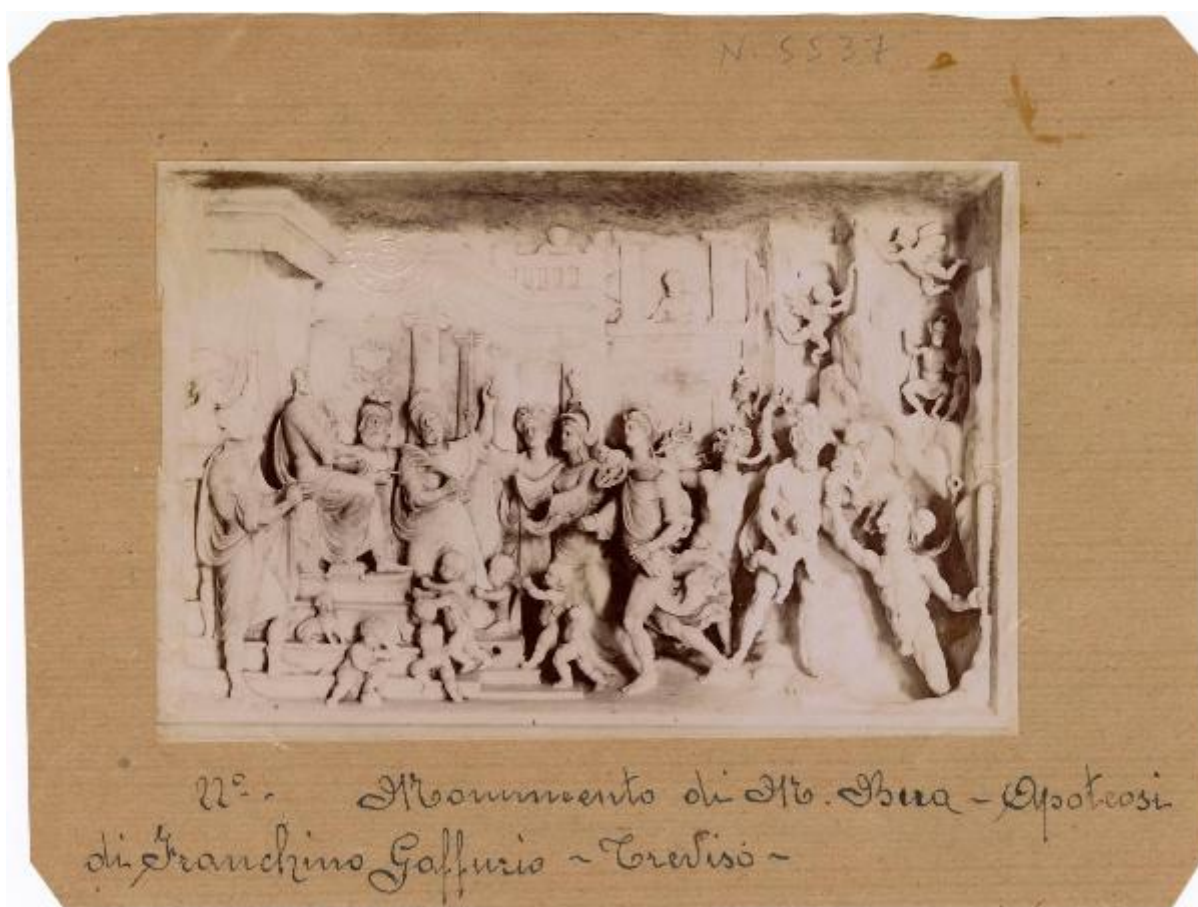 N. 5537
22º. - Monumento di M. Bua - Apoteosi
di Franchino Gaffurio - Treviso -